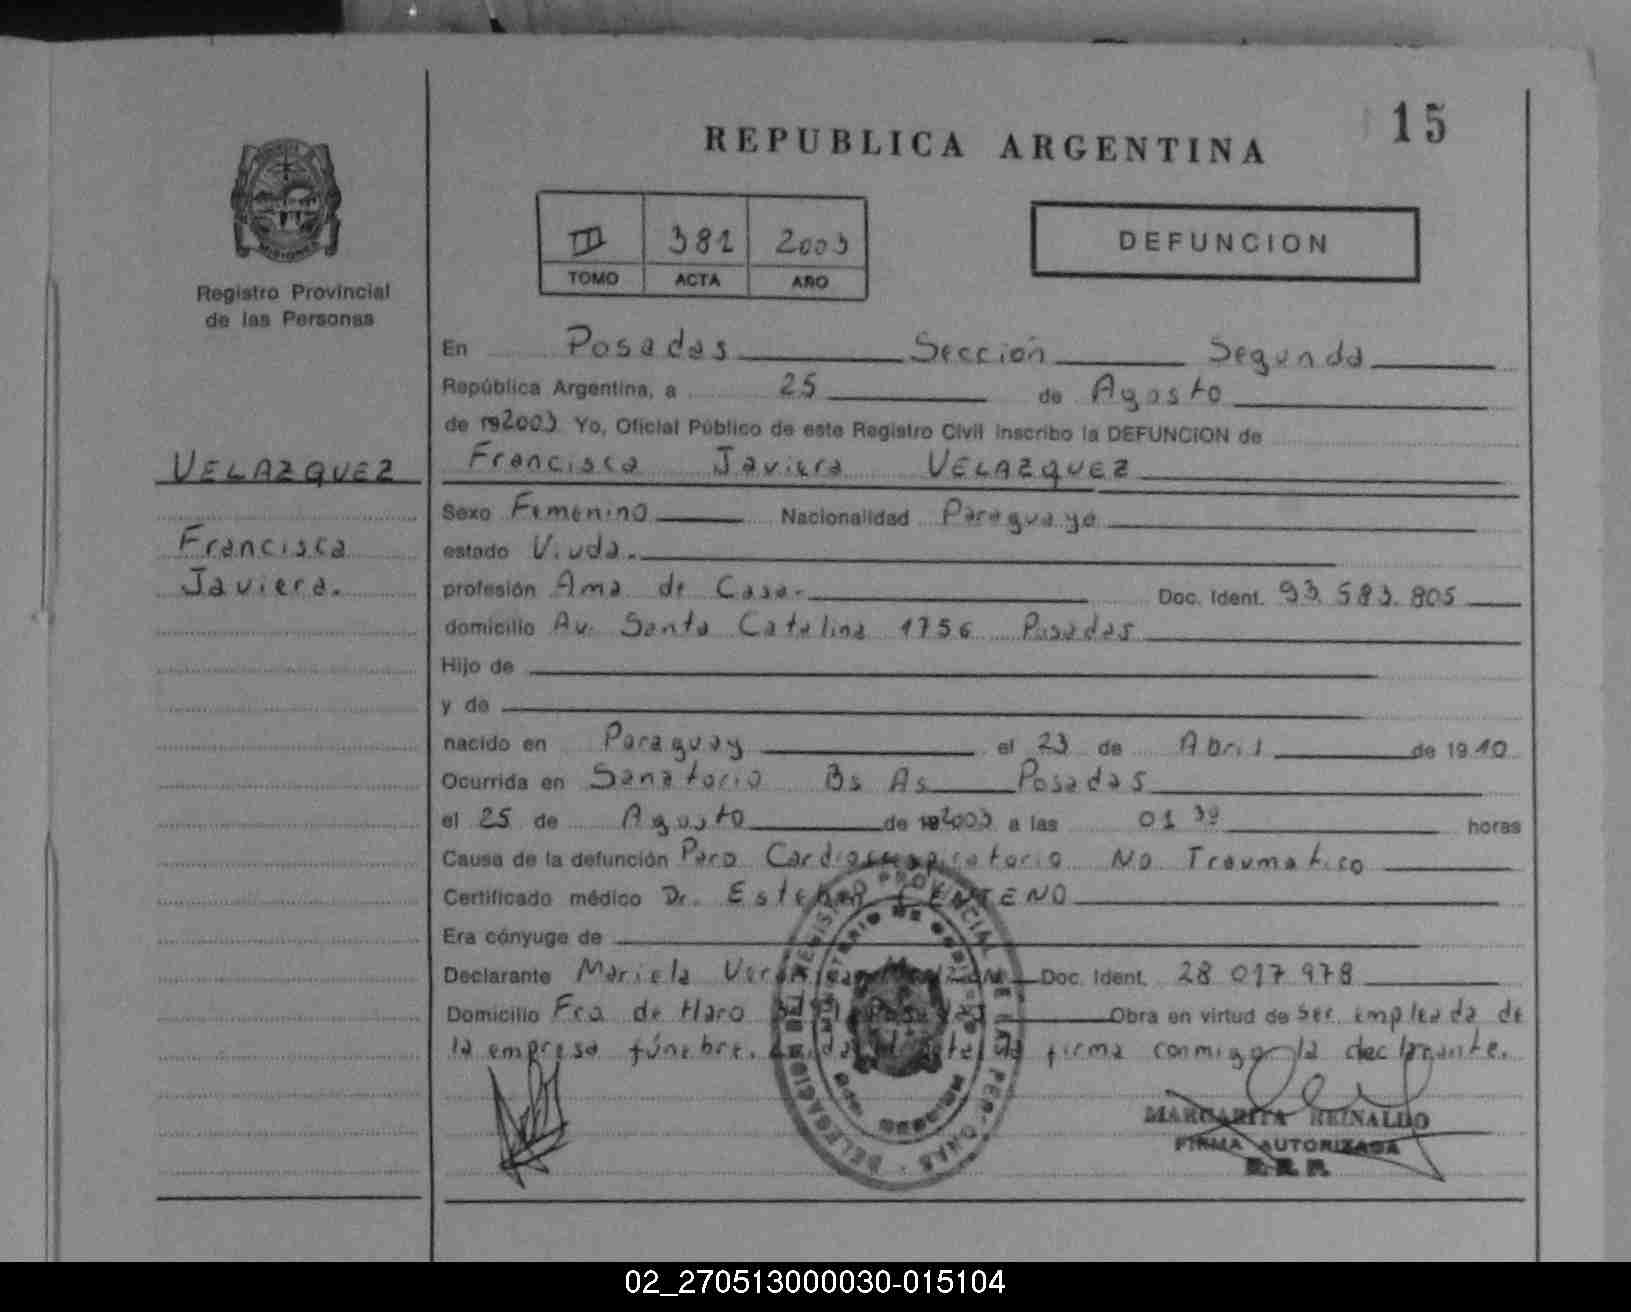 15
REPUBLICA ARGENTINA
III 381 2003
TOMO ACTA AÑO
DEFUNCION
Registro Provincial
de las Personas
En Posadas Sección Segunda
República Argentina, a 25 de Agosto
de 192003 Yo, Oficial Público de este Registro Civil inscribo la DEFUNCION de
VELAZQUEZ
Francisca Javiera VELAZQUEZ
Francisca
Javiera.
Sexo Femenino Nacionalidad Paraguaya
estado Viuda.
profesión Ama de Casa. Doc. Ident. 93.583.805
domicilio Av. Santa Catalina 1756 Posadas
Hijo de
y de
nacido en Paraguay el 23 de Abril de 1910
Ocurrida en Sanatorio Bs As Posadas
el 25 de Agosto de 192003 a las 01 30 horas
Causa de la defunción Paro Cardiorrespiratorio No Traumatico
Certificado médico Dr. Esteban CENTENO
Era cónyuge de
Declarante Mariela Verónica Doc. Ident. 28 017 978
Domicilio Fco. de Haro Posadas Obra en virtud de Ser empleada de
la empresa fúnebre. Leída el acta la firma conmigo la declarante.
REGISTRO PROVINCIAL DE LAS PERSONAS
DELEGACION
MINISTERIO DE GOBIERNO
MISIONES
MARGARITA REINALDO
FIRMA AUTORIZADA
R.P.P.
02_270513000030-015104